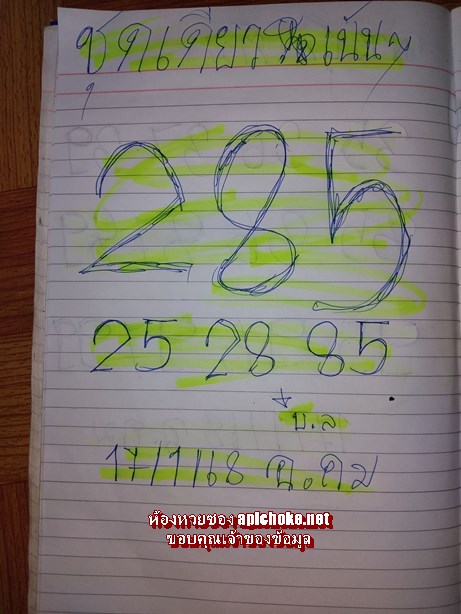 ชุดเดียว เน้นๆ
285
25 28 85
บ.ล
17/1/68 ฉ.คม
ห้องหวยซอง apichoke.net
ขอบคุณเจ้าของข้อมูล